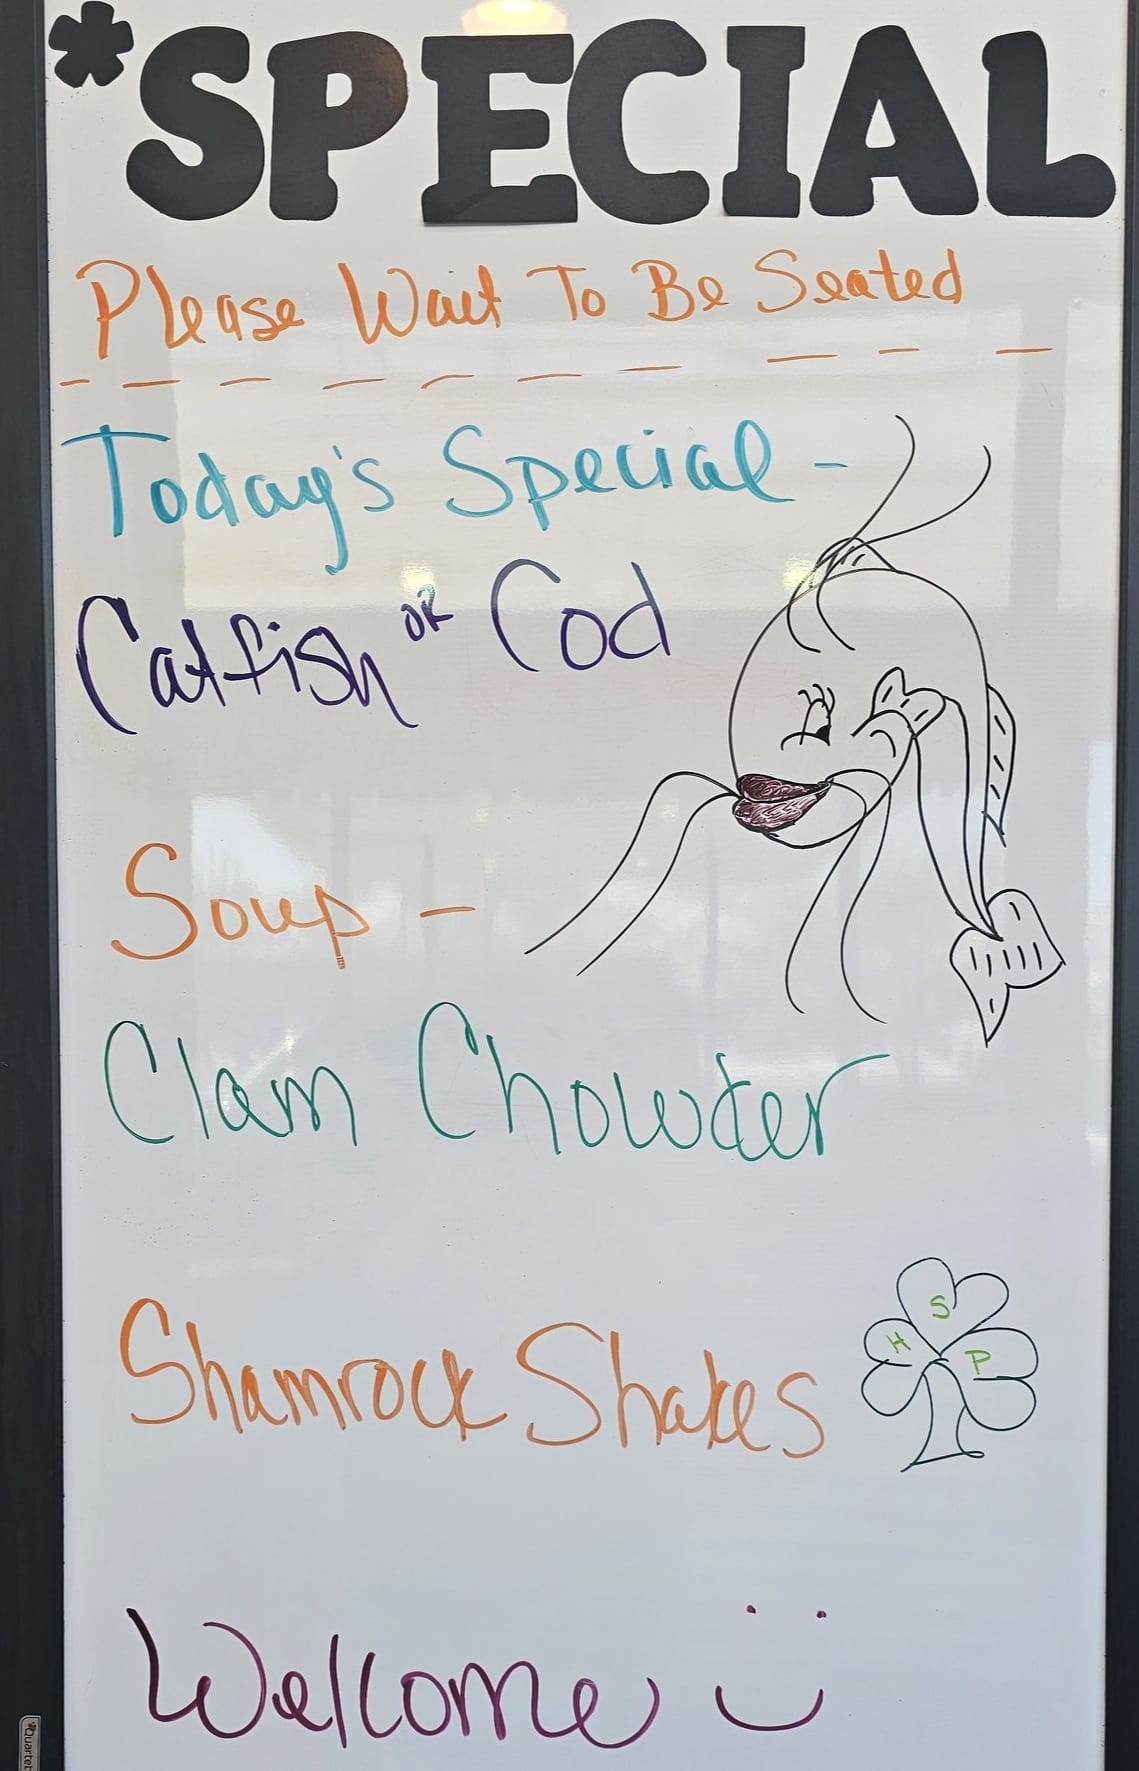 *SPECIAL
Please Wait To Be Seated
Today's Special -
Catfish OR Cod
Soup -
Clam Chowder
Shamrock Shakes
H S P
Welcome :)
Quartet